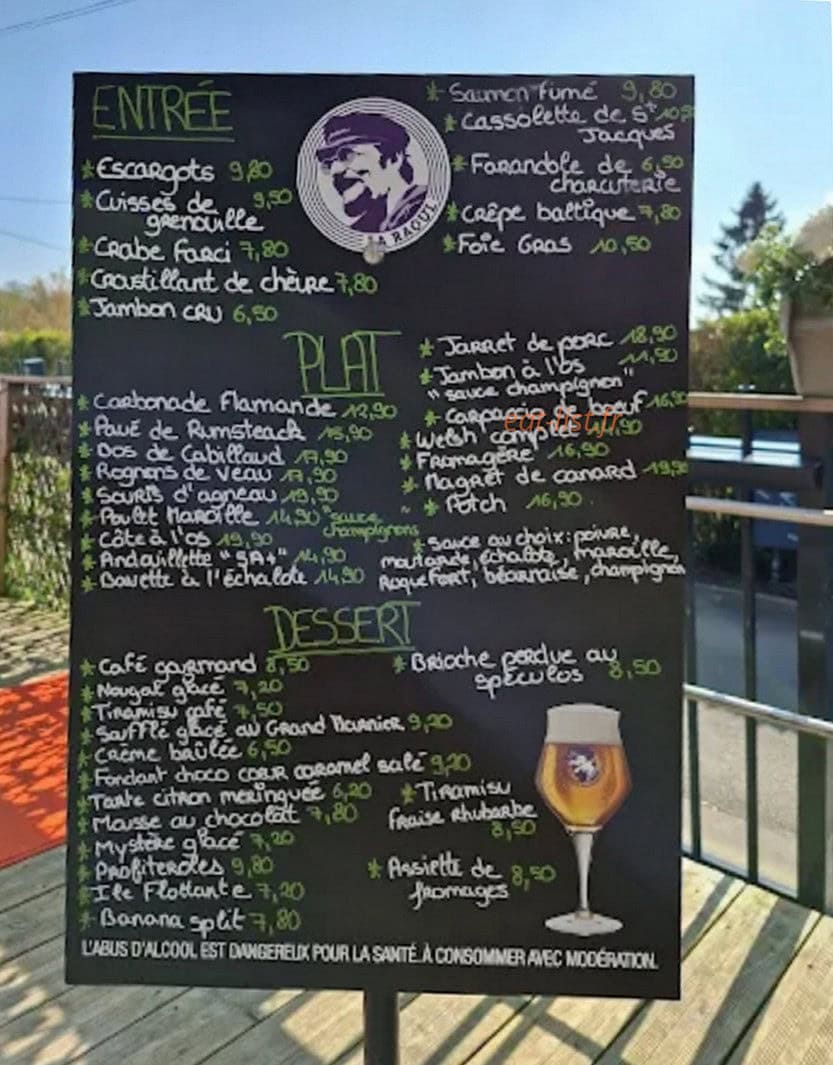 ENTRÉE
* Escargots 9,80
* Cuisses de 9,50
grenouille
* Crabe farci 7,80
* Croustillant de chèvre 7,80
* Jambon CRU 6,50
LA RAOUL
* Saumon fumé 9,80
* Cassolette de St
Jacques
* Farandole de 6,50
charcuterie
* Crêpe baltique 7,80
* Foie Gras 10,50
PLAT
* Carbonade Flamande 12,90
* Pavé de Rumsteack 15,90
* Dos de Cabillaud 17,90
* Rognons de veau 17,90
* Souris d'agneau 19,90
* Poulet Maroille 14,90 "sauce
champignons"
* Côte à l'os 19,90
* Andouillette "5A+" 14,90
* Bavette à l'échalote 14,90
* Jarret de porc 18,90
* Jambon à l'os 11,90
"sauce champignon"
* Carpaccio de bœuf 16,90
eat-list.fr
* Welsh complet
* Fromagère 16,90
* Magret de canard 19,90
* Potch 16,90
* Sauce au choix: poivre,
moutarde, échalote, maroille,
Roquefort, béarnaise, champignon
DESSERT
* Café gourmand 8,50
* Nougat glacé 7,20
* Tiramisu café 7,50
* Soufflé glacé au Grand Marnier 9,20
* Crème brûlée 6,50
* Fondant choco cœur caramel salé 9,20
* Tarte citron meringuée 6,20
* Mousse au chocolat 7,80
* Mystère glacé 7,20
* Profiteroles 9,80
* Ile Flottante 7,20
* Banana split 7,80
* Brioche perdue au
spéculos 8,50
* Tiramisu
fraise rhubarbe
8,50
* Assiette de 8,50
fromages
L'ABUS D'ALCOOL EST DANGEREUX POUR LA SANTÉ. À CONSOMMER AVEC MODÉRATION.